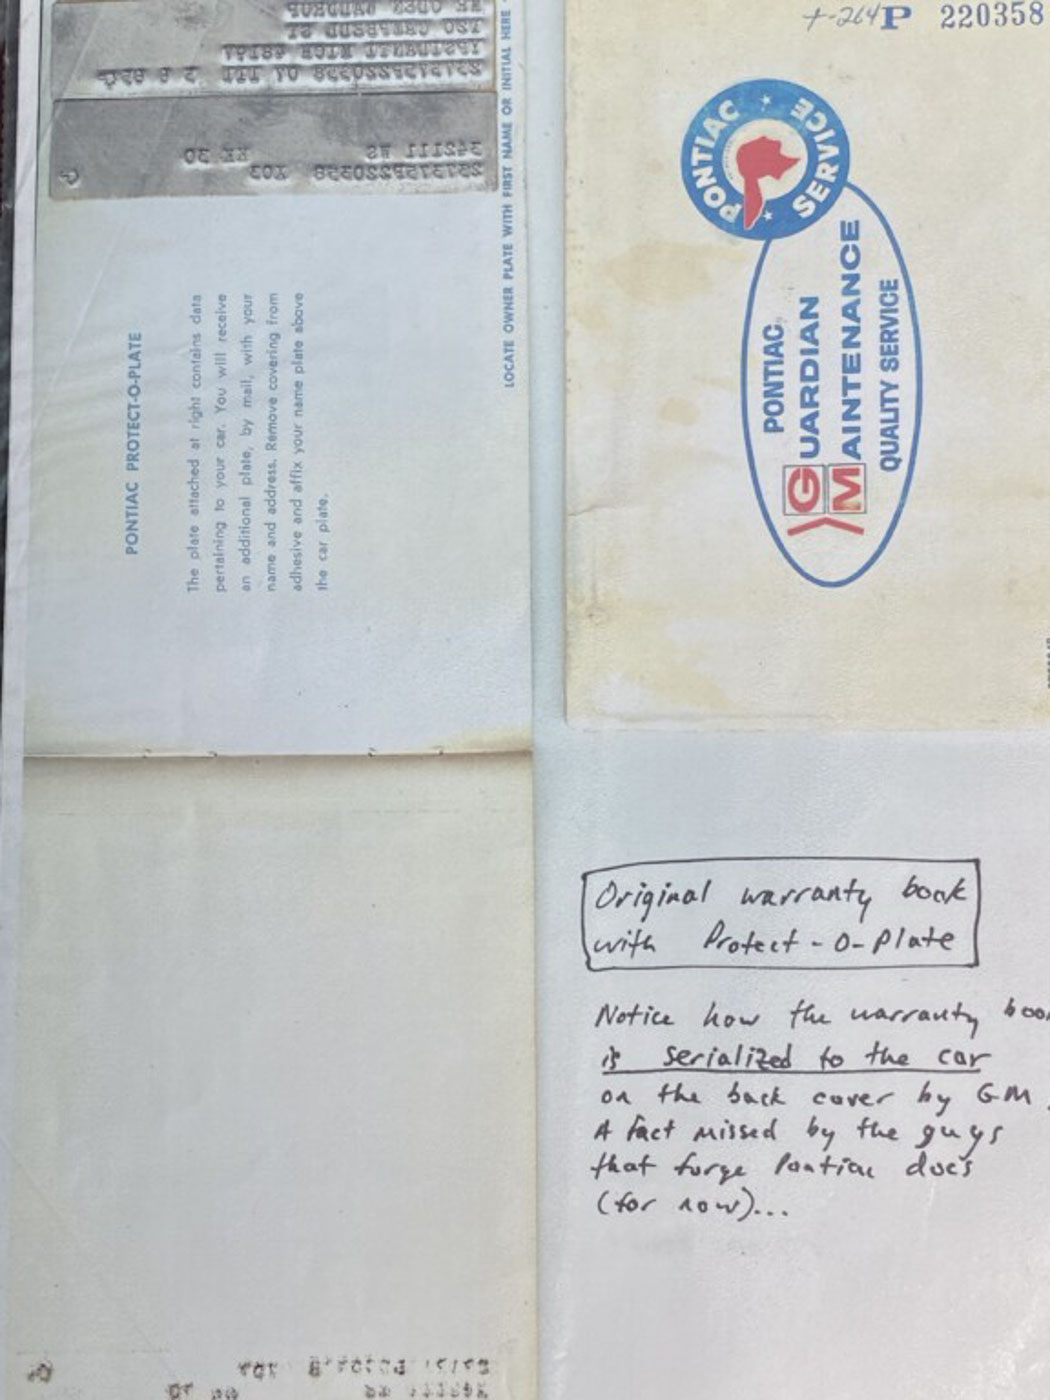 LOCATE OWNER PLATE WITH FIRST NAME OR INITIAL HERE
PONTIAC PROTECT-O-PLATE
The plate attached at right contains data
pertaining to your car. You will receive
an additional plate, by mail, with your
name and address. Remove covering from
adhesive and affix your name plate above
the car plate.
+-264 P 220358
PONTIAC SERVICE
PONTIAC
GUARDIAN
MAINTENANCE
QUALITY SERVICE
Original warranty book
with Protect-O-Plate
Notice how the warranty boo
is serialized to the car
on the back cover by GM.
A fact missed by the guys
that forge Pontiac docs
(for now)...